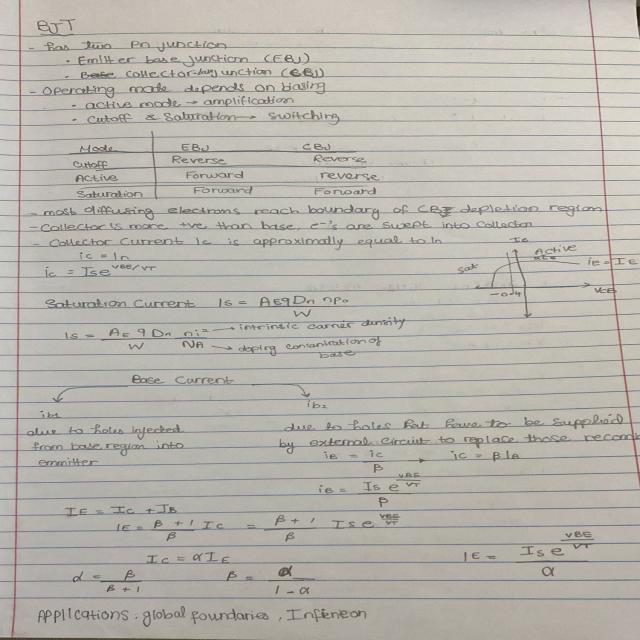 BJT
- has two Pn junction
• Emitter base junction (EBJ)
• collector junction (CBJ)
- Operating mode depends on biasing
• active mode → amplification
• cutoff & saturation → switching
Mode EBJ CBJ
Cutoff Reverse Reverse
Active Forward reverse
Saturation Forward Forward
- most diffusing electrons reach boundary of CBJ depletion region
- Collector is more +ve than base, e-'s are swept into Collector
- Collector Current Ic is approximally equal to In
ic = In
ic = Is e^VBE/VT
Ic
Active
sat
iE = IE
-0.4
VCB
Saturation Current Is = AE q Dn npo / W
Is = AE q Dn / W ni² / NA → intrinsic carrier density
→ doping concentration of base
Base Current
ib1
due to holes injected
from base region into
emmitter
ib2
due to holes that have to be supplied
by external circuit to replace those recomb
iB = ic / β → ic = β IB
iB = Is e^VBE/VT / β
IE = IC + IB
IE = β + 1 / β Ic = β + 1 / β Is e^VBE/VT
Ic = α IE
IE = Is e^VBE/VT / α
α = β / β + 1 β = α / 1 - α
Applications: global foundaries, Infineon